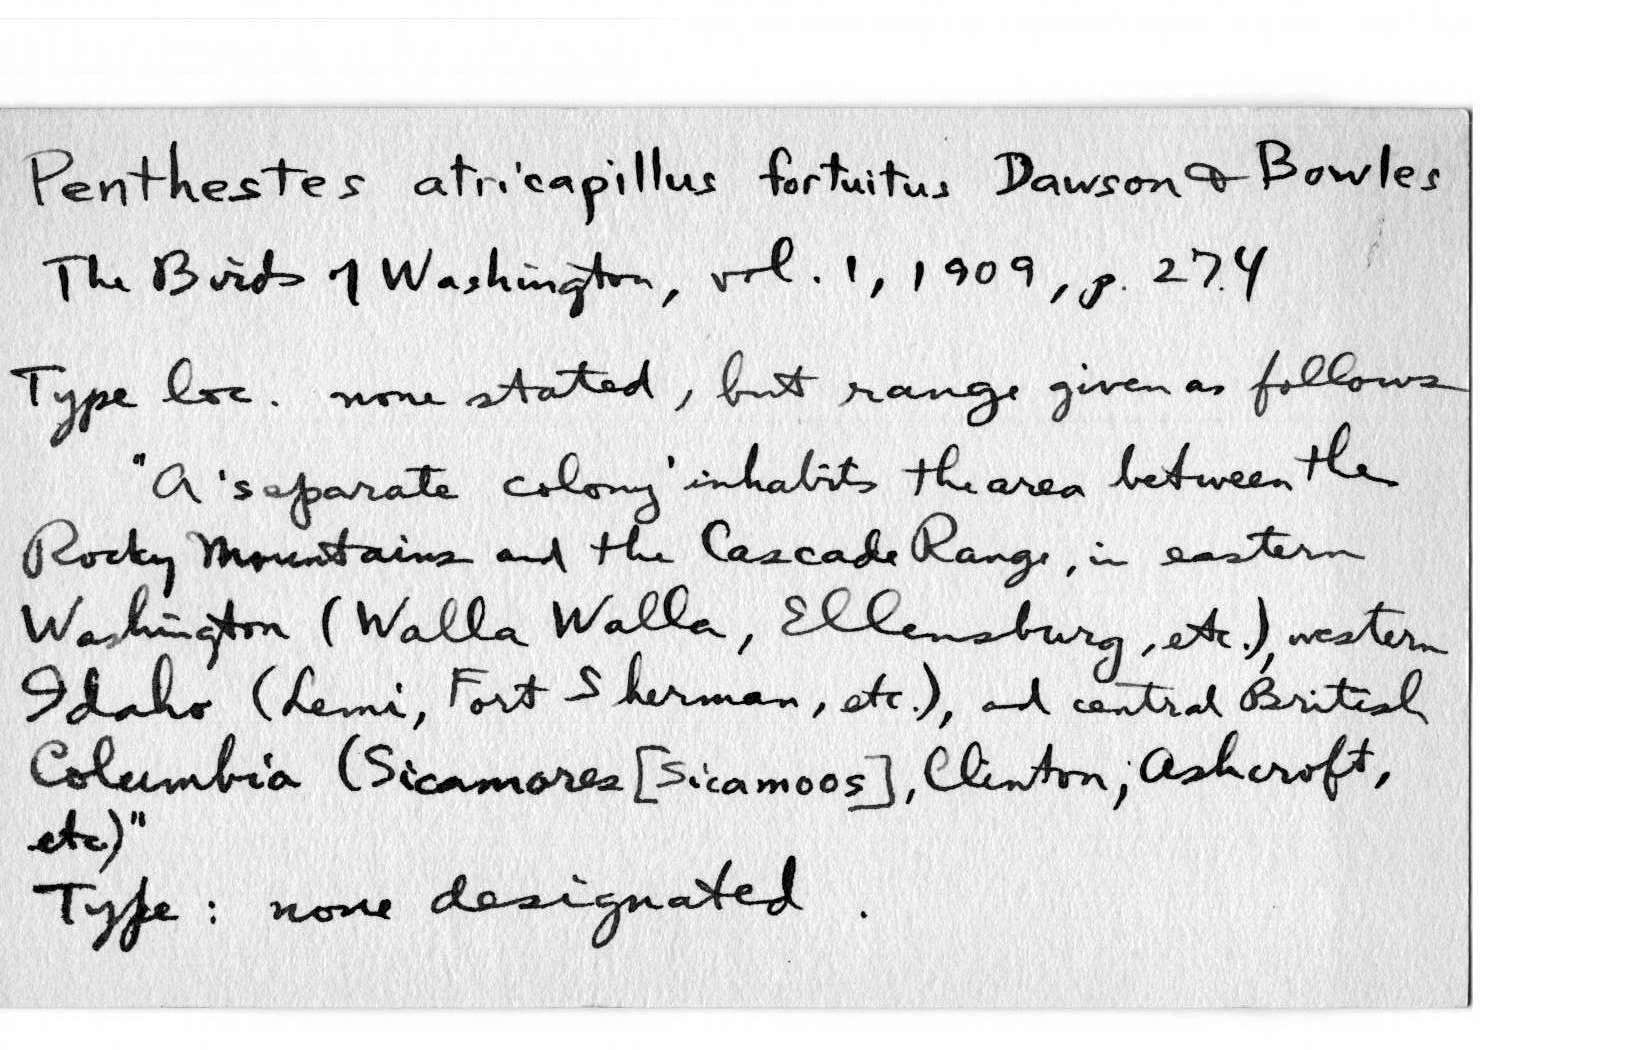 Penthestes atricapillus fortuitus Dawson & Bowles
The Birds of Washington, vol. 1, 1909, p. 274
Type loc. none stated, but range given as follows
"A 'separate colony' inhabits the area between the
Rocky Mountains and the Cascade Range, in eastern
Washington (Walla Walla, Ellensburg, etc.), western
Idaho (Lemi, Fort Sherman, etc.), and central British
Columbia (Sicamores [Sicamoos], Clinton, Ashcroft,
etc)"
Type : none designated .